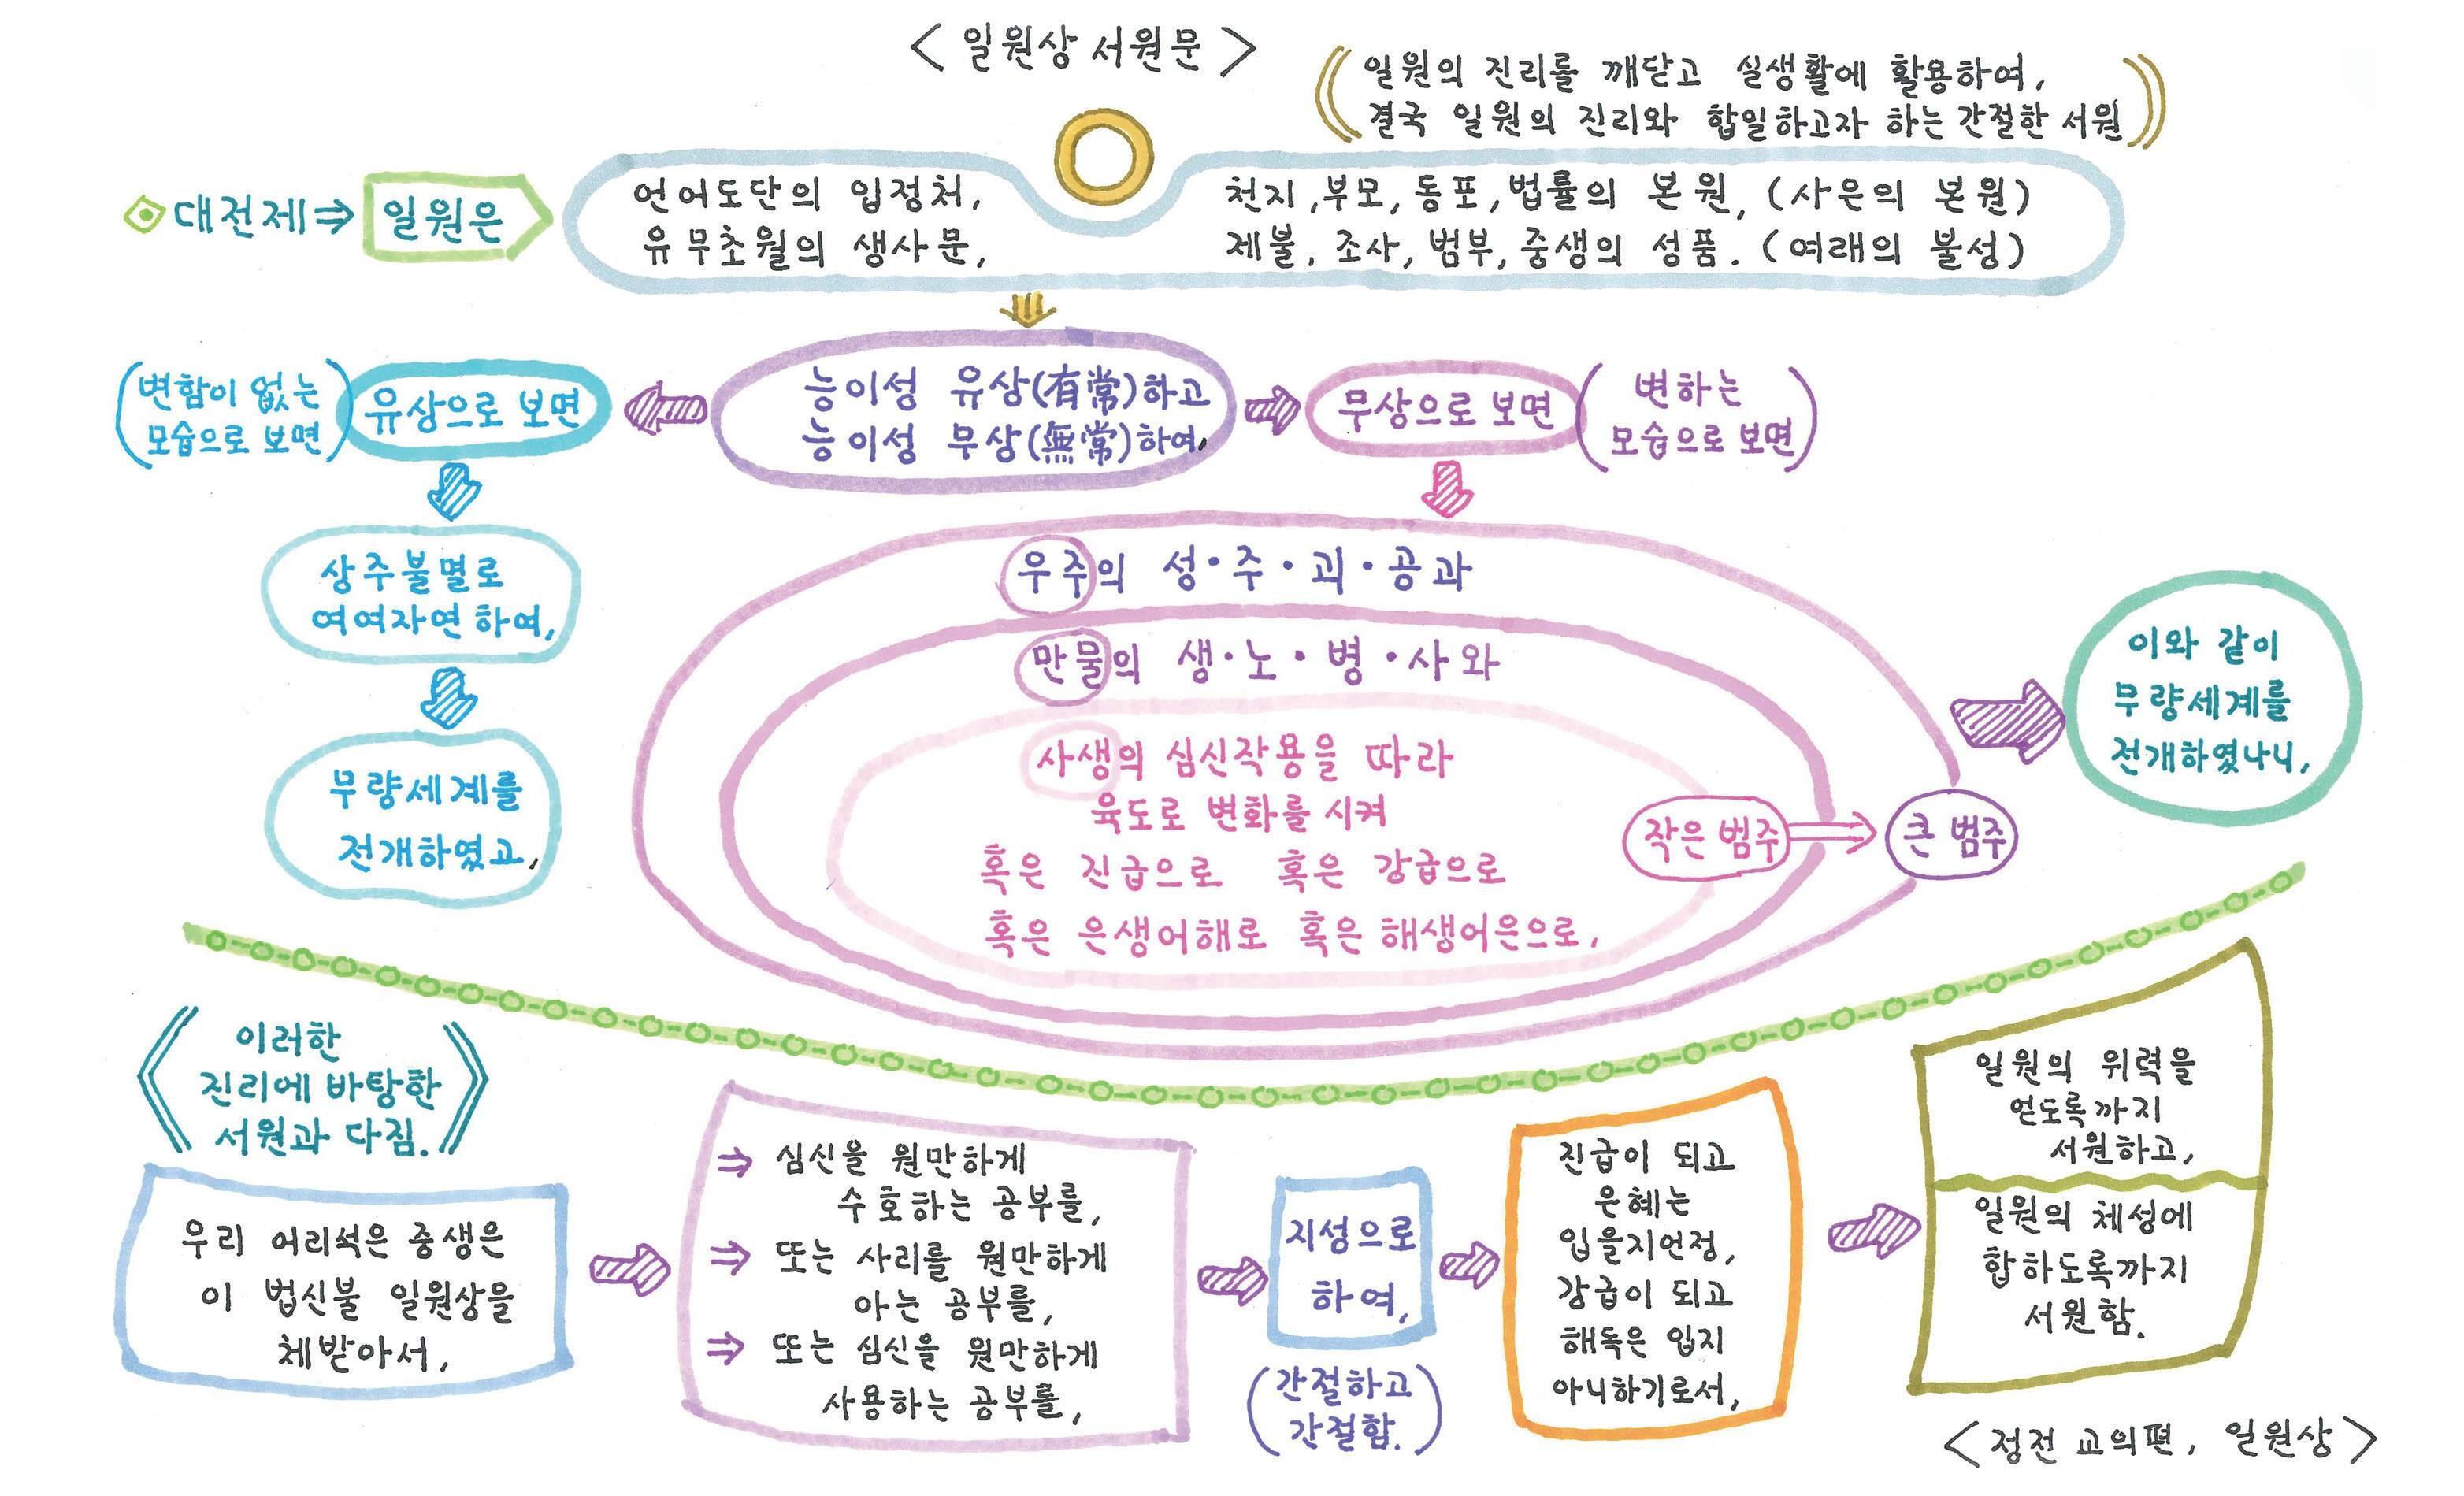 < 일원상 서원문 >
(( 일원의 진리를 깨닫고 실생활에 활용하여,
결국 일원의 진리와 합일하고자 하는 간절한 서원 ))
대전제 ⇒ 일원은
언어도단의 입정처,
유무초월의 생사문,
천지, 부모, 동포, 법률의 본원, (사은의 본원)
제불, 조사, 범부, 중생의 성품. (여래의 불성)
능이성 유상(有常)하고
능이성 무상(無常)하여,
유상으로 보면
(변함이 없는
모습으로 보면)
상주불멸로
여여자연하여,
무량세계를
전개하였고,
무상으로 보면
(변하는
모습으로 보면)
우주의 성·주·괴·공과
만물의 생·노·병·사와
사생의 심신작용을 따라
육도로 변화를 시켜
혹은 진급으로 혹은 강급으로
혹은 은생어해로 혹은 해생어은으로,
작은 범주 ⇒ 큰 범주
이와 같이
무량세계를
전개하였나니,
《 이러한
진리에 바탕한
서원과 다짐. 》
우리 어리석은 중생은
이 법신불 일원상을
체받아서,
⇒ 심신을 원만하게
수호하는 공부를,
⇒ 또는 사리를 원만하게
아는 공부를,
⇒ 또는 심신을 원만하게
사용하는 공부를,
지성으로
하여,
(간절하고
간절함.)
진급이 되고
은혜는
입을지언정,
강급이 되고
해독은 입지
아니하기로서,
일원의 위력을
얻도록까지
서원하고,
일원의 체성에
합하도록까지
서원함.
< 정전 교의편, 일원상 >